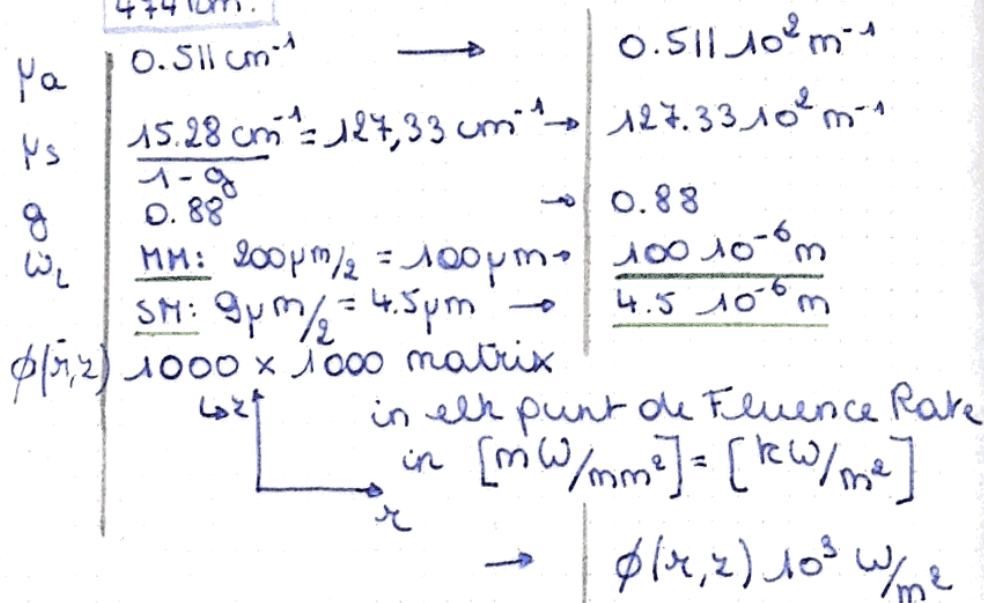 474 nm.
μa 0.511 cm⁻¹ → 0.511 10² m⁻¹
μs 15.28 cm⁻¹ / 1-g = 127,33 cm⁻¹ → 127.33 10² m⁻¹
g 0.88 → 0.88
ωL MM: 200μm/2 = 100μm → 100 10⁻⁶ m
SM: 9μm/2 = 4.5μm → 4.5 10⁻⁶ m
ϕ(r,z) 1000 × 1000 matrix
↳ z in elk punt de Fluence Rate
in [mW/mm²] = [kW/m²]
r
→ ϕ(r,z) 10³ W/m²